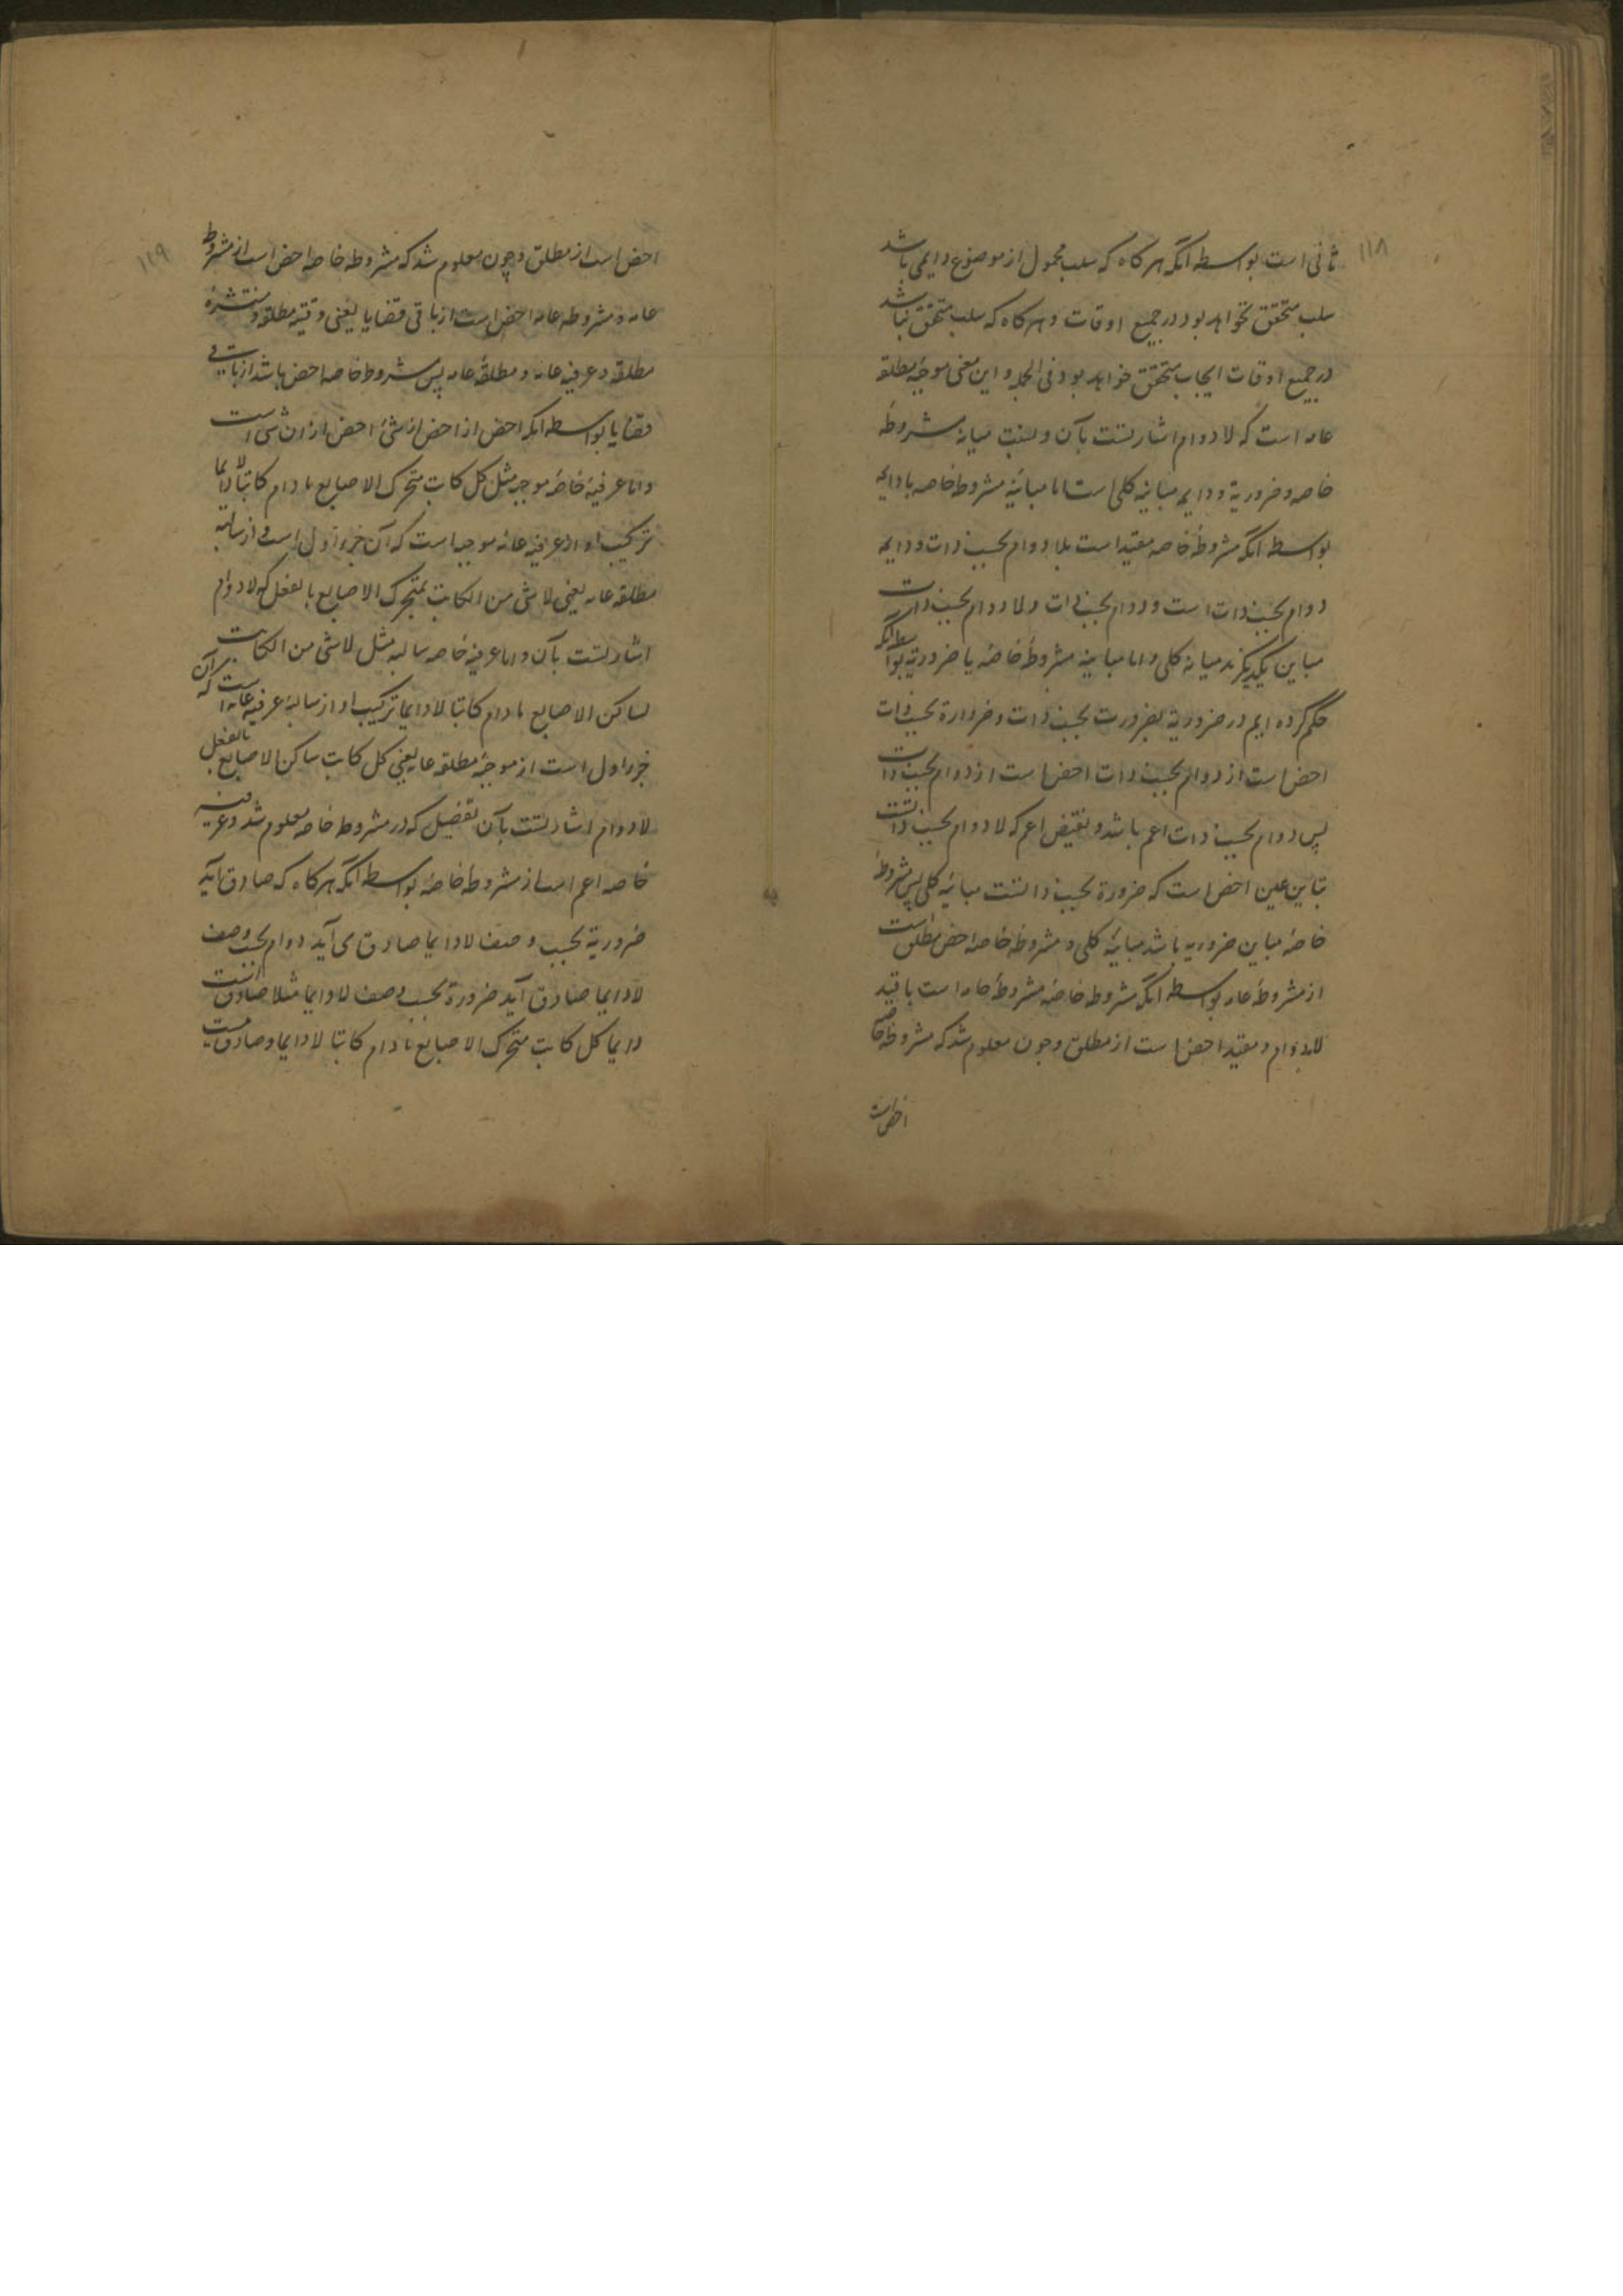 ۱۱۸
ثانی است بواسطه آنکه هرکاه که سلب محمول از موضوع دایمی باشد
سلب متحقق نخواهد بود در جمیع اوقات و هرکاه که سلب متحقق نباشد
در جمیع اوقات ایجاب متحقق خواهد بود فی الجمله و این معنی موجبهٔ مطلقه
عامه است که لادوام اشارتست بآن و نسبت میانهٔ مشروطهٔ
خاصه و ضروریة و دایمه مباینهٔ کلی است اما مباینهٔ مشروطهٔ خاصه با دایمه
بواسطه آنکه مشروطهٔ خاصه مقید است بلا دوام بحسب ذات و دایمه
دوام بحسب ذات است و دوام بحسب ذات و لادوام بحسب ذات
مباین یکدیگرند میانه کلی و اما مباینه مشروطهٔ خاصه با ضروریة بواسطه آنکه
حکم کرده ایم در ضروریة بضرورت بحسب ذات و ضرورة بحسب ذات
اخص است از دوام بحسب ذات اخص است از دوام بحسب ذات
پس دوام بحسب ذات اعم باشد و نقیض اعم که لادوام بحسب ذاتست
مباین عین اخص است که ضرورة بحسب ذاتست مباینهٔ کلی پس مشروطهٔ
خاصه مباین ضروریه باشد مباینهٔ کلی و مشروطهٔ خاصه اخص مطلق است
از مشروطهٔ عامه بواسطه آنکه مشروطهٔ خاصه مشروطهٔ عامه است با قید
لادوام و مقید اخص است از مطلق و چون معلوم شد که مشروطهٔ خاصه
اخص است
۱۱۹
اخص است از مطلق و چون معلوم شد که مشروطه خاصه اخص است از مشروطه
عامه و مشروطه عامه اخص است از باقی قضایا یعنی وقتیه مطلقه و منتشرهٔ
مطلقه و عرفیه عامه و مطلقهٔ عامه پس مشروطه خاصه اخص باشد از باقی
قضایا بواسطه آنکه اخص از اخص از شئ اخص از ان شی است
و اما عرفیهٔ خاصهٔ موجبه مثل کل کاتب متحرک الاصابع مادام کاتبا لادایما
ترکیب او از عرفیه عامه موجبه است که آن جزء اول است و از سالبه
مطلقه عامه یعنی لا شی من الکاتب بمتحرک الاصابع بالفعل که لادوام
اشارتست بآن و اما عرفیهٔ خاصه سالبه مثل لاشی من الکاتب
بساکن الاصابع مادام کاتبا لادایما ترکیب او از سالبهٔ عرفیه عامه است که آن
جزء اول است از موجبهٔ مطلقه عامه یعنی کل کاتب ساکن الاصابع بالفعل
لادوام اشارتست بآن بتفصیل که در مشروطه خاصه معلوم شد و عرفیه
خاصه اعم است از مشروطه خاصه بواسطه آنکه هرکاه که صادق آید
ضروریة بحسب وصف لادایما صادق می آید دوام بحسب وصف
لادایما صادق آید ضرورة بحسب وصف لادایما مثلا صادق است
دایما کل کاتب متحرک الاصابع مادام کاتبا لادایما و صادق نیست